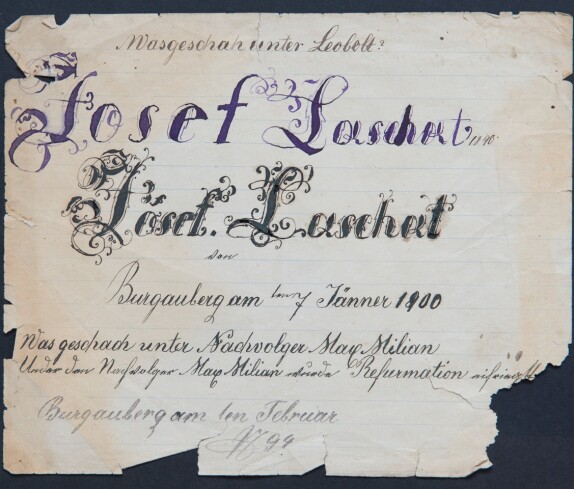 Wasgeschah unter Leobolt?
Josef Laschat
Josef. Laschat
von
Burgauberg am ten 7 Jänner 1900
Was geschach unter Nachvolger Max Milian
Under den Nachvolger Max Milian wurde Refurmation
Burgauberg am 1en Februar
99